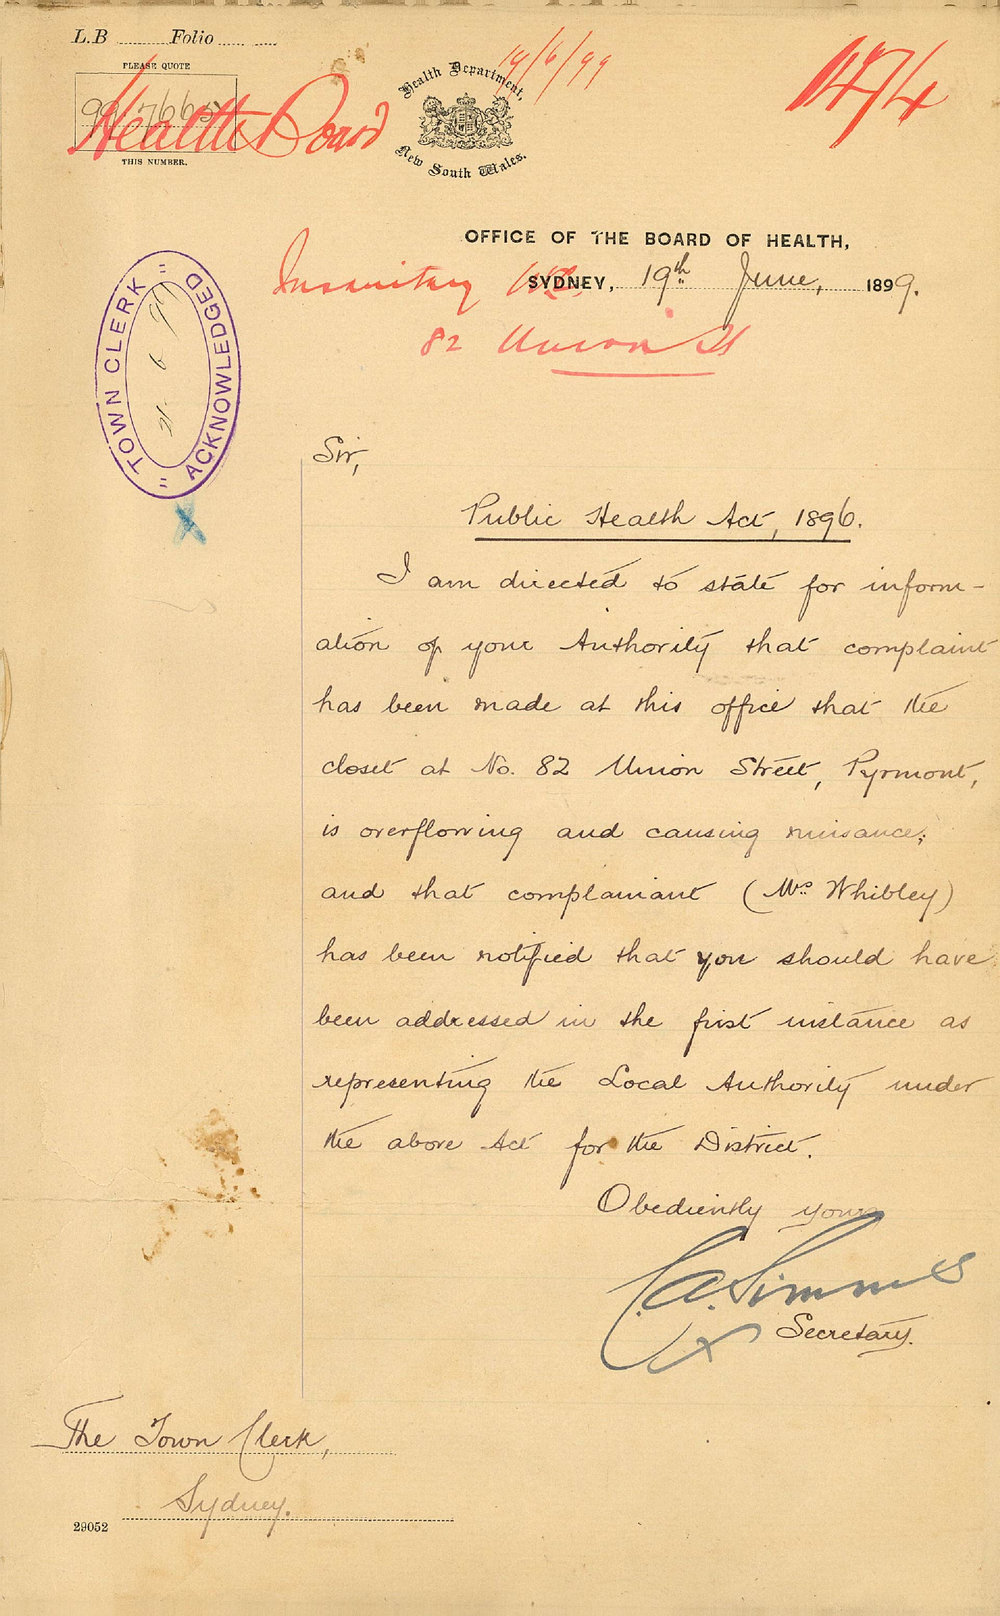 L.B ........ Folio ...... .....
PLEASE QUOTE
99 7665
THIS NUMBER.
Health Board
Health Department,
New South Wales.
19/6/99
OFFICE OF THE BOARD OF HEALTH,
SYDNEY, 19th June, 1899.
Insanitary
82 Union St
TOWN CLERK
ACKNOWLEDGED
21 6 99
Sir,
Public Health Act, 1896.
I am directed to state for inform-
ation of your Authority that complaint
has been made at this office that the
closet at No. 82 Union Street, Pyrmont,
is overflowing and causing nuisance;
and that complainant (Mrs Whibley)
has been notified that you should have
been addressed in the first instance as
representing the Local Authority under
the above Act for the District.
Obediently yours
Secretary.
The Town Clerk,
Sydney.
29052